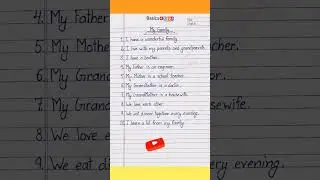 Basics
My Family
1. I have a wonderful family.
2. I live with my parents and grandparents.
3. I have a brother.
4. My Father is an engineer.
5. My Mother is a school teacher.
6. My Grandfather is a doctor.
7. My GrandMother is a housewife.
8. We love each other.
9. We eat dinner together every evening.
10. I learn a lot from my family.
4. My Father
5. My Mother
6. My Grand
7. My Grand
8. We love e
9. We eat di
er.
sewife.
every evening.